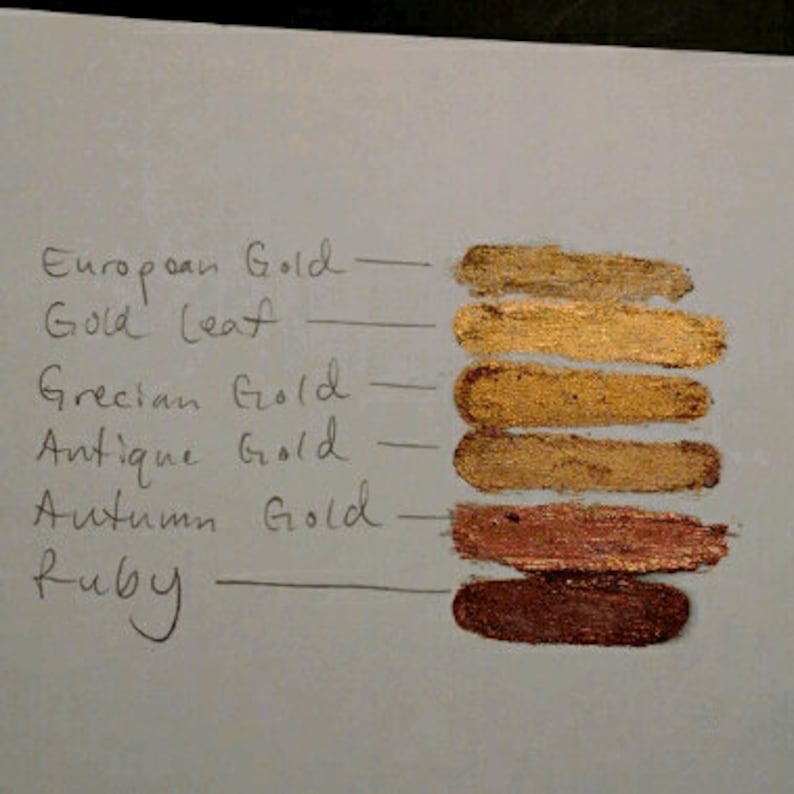 European Gold
Gold Leaf
Grecian Gold
Antique Gold
Autumn Gold
Ruby